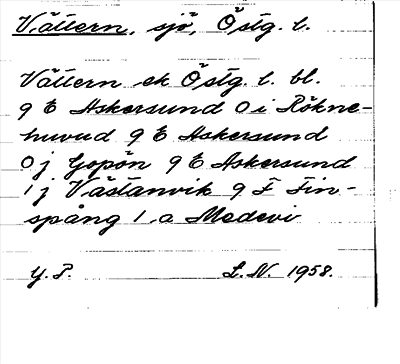 Vättern, sjö, Östg. l.
Vättern ek Östg. l. bl.
9 E Askersund 0 i Rökne-
huvud 9 E Askersund
0 j Gopön 9 E Askersund
1 j Västanvik 9 F Fin-
spång 1 a Medevi
Y. P. L. N. 1958.